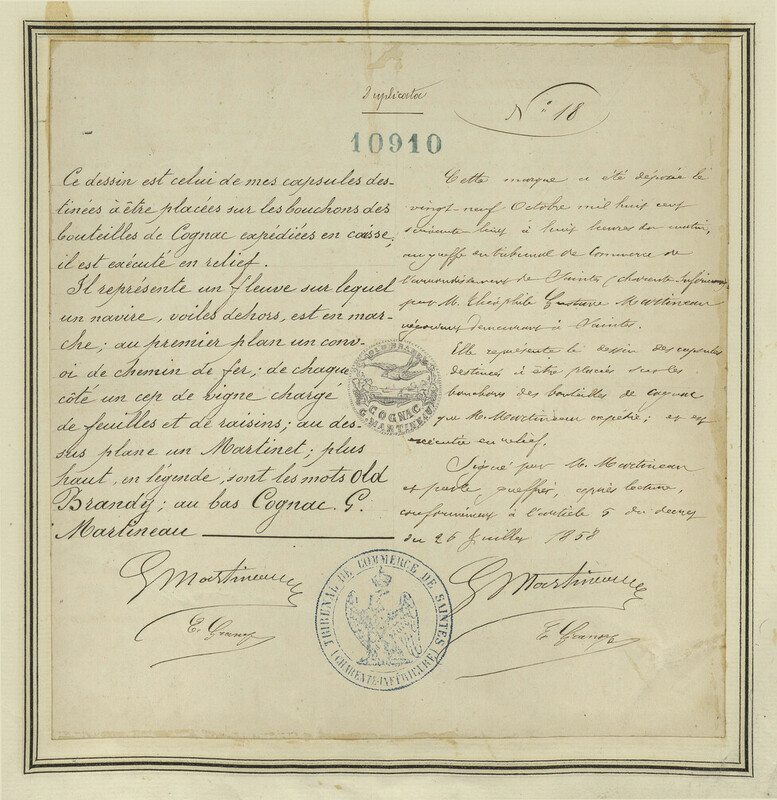 Duplicata
N° 18
10910
Ce dessin est celui de mes capsules des-
tinées à être placées sur les bouchons des
bouteilles de Cognac expédiées en caisse,
il est exécuté en relief.
Il représente un fleuve sur lequel
un navire, voiles dehors, est en mar-
che; au premier plan un conv-
oi de chemin de fer; de chaque
côté un cep de vigne chargé
de feuilles et de raisins; au des-
sus plane un Martinet; plus
haut, en légende, sont les mots Old
Brandy; au bas Cognac. G.
Martineau
G Martineau
Cette marque a été déposée le
vingt-neuf Octobre mil huit cent
soixante à huit heures du matin,
au greffe du tribunal de Commerce de
l'arrondissement de Saintes (charente Inférieure)
par M. Théophile Gustave Martineau
négociant demeurant à Saintes.
Elle représente le dessin des capsules
destinées à être placées sur les
bouchons des bouteilles de cognac
que M. Martineau expédie; et est
exécutée en relief.
Signé par M. Martineau
et par le greffier, après lecture,
conformément à l'article 5 du décret
du 26 Juillet 1858
G Martineau
OLD BRANDY
COGNAC
G. MARTINEAU
TRIBUNAL DE COMMERCE DE SAINTES
(CHARENTE-INFÉRIEURE)